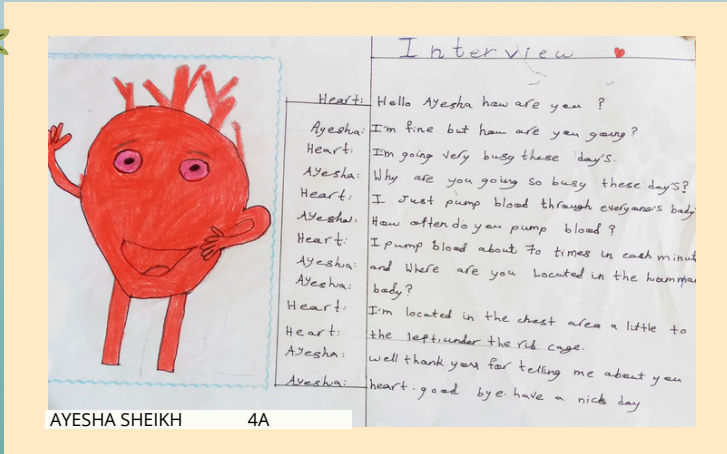 Interview
Heart: Hello Ayesha how are you ?
Ayesha: I'm fine but how are you going?
Heart: I'm going very busy these day's.
Ayesha: Why are you going so busy these day's?
Heart: I Just pump blood through everyone's body
Ayesha: How often do you pump blood ?
Heart: I pump blood about 70 times in each minut
Ayesha: and Where are you Located in the humman
Ayesha: body?
Heart: I'm located in the chest area a little to
Heart: the left, under the rib cage.
Ayesha: well thank you for telling me about you
Ayesha: heart. good bye. have a nice day
AYESHA SHEIKH 4A